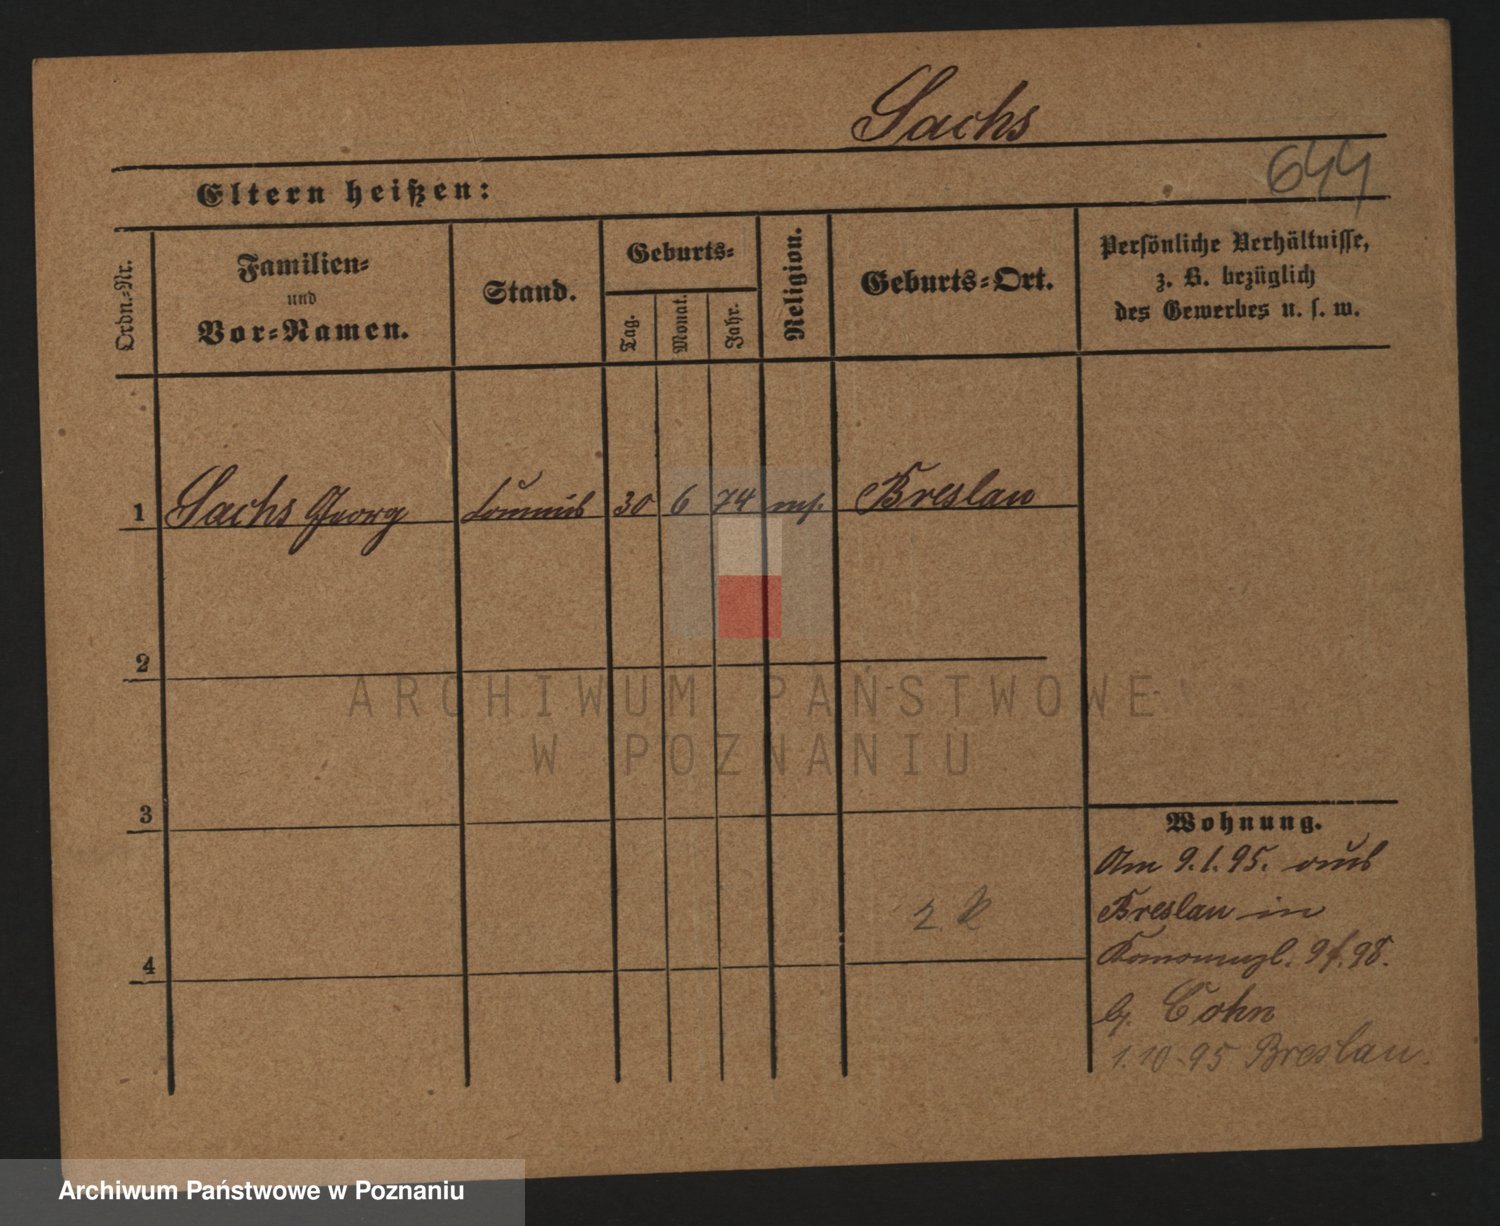 Sachs
644
Eltern heißen:
Ordn.-Nr.
Familien-
und
Vor-Namen.
Stand.
Geburts-
Tag.
Monat.
Jahr.
Religion.
Geburts-Ort.
Persönliche Verhältnisse,
z. B. bezüglich
des Gewerbes u. s. w.
1 Sachs Georg Commis 30 6 74 mos. Breslau
2
3
4
2.
Wohnung.
Am 9.1.95. aus
Breslau in
b/. Cohn
1.10.95 Breslau.
ARCHIWUM PAŃSTWOWE
W POZNANIU
Archiwum Państwowe w Poznaniu